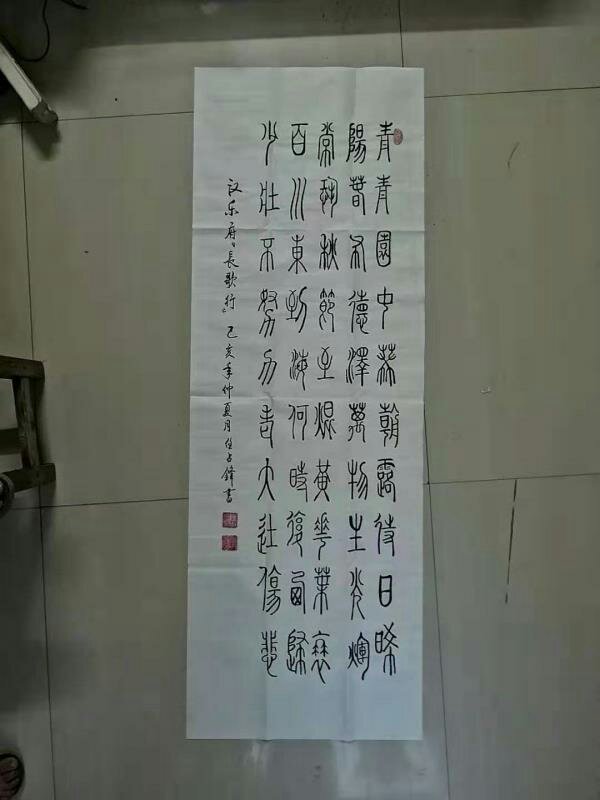 青青園中葵朝露待日晞
陽春布德澤萬物生光輝
常恐秋節至焜黃華葉衰
百川東到海何時復西歸
少壯不努力老大徒傷悲
汉乐府『長歌行』己亥年仲夏月任占鋒書